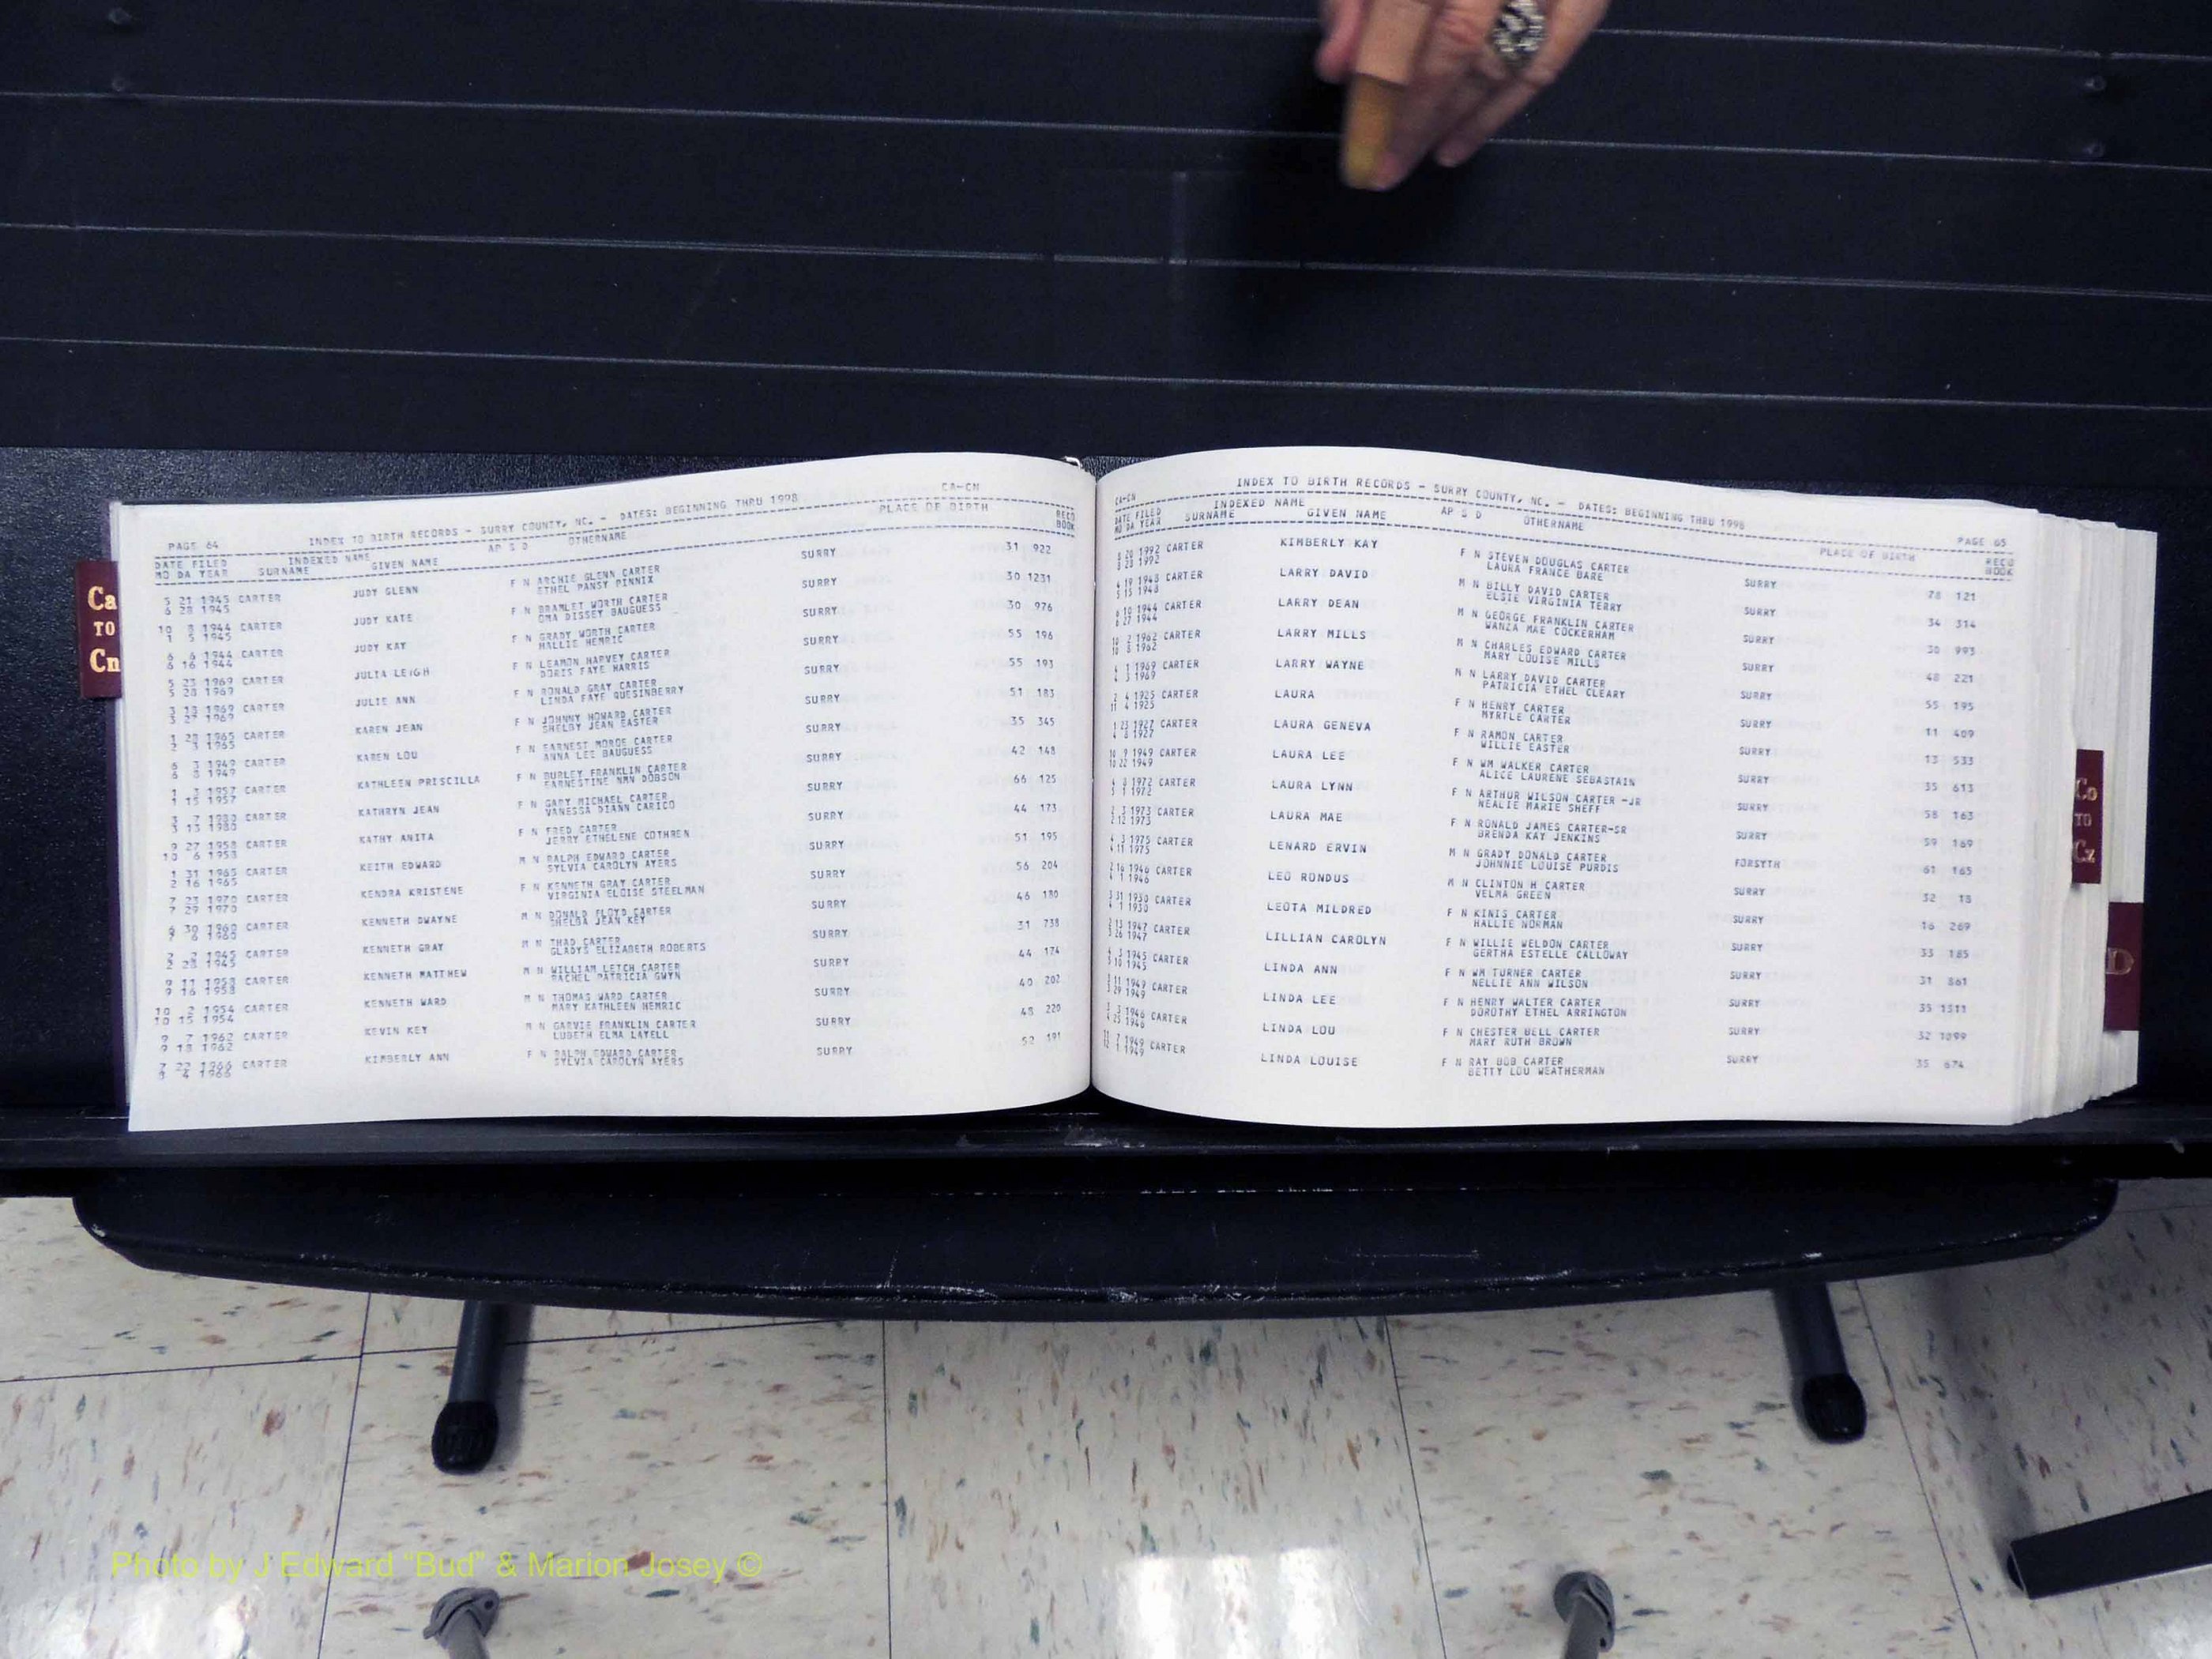 Ca
TO
Cn
CA-CN
PAGE 64 INDEX TO BIRTH RECORDS - SURRY COUNTY, NC. - DATES: BEGINNING THRU 1998
DATE FILED INDEXED NAME AP S D OTHERNAME PLACE OF BIRTH RECO
MO DA YEAR SURNAME GIVEN NAME BOOK
5 21 1945 CARTER JUDY GLENN F N ARCHIE GLENN CARTER SURRY 31 922
6 28 1945 ETHEL PANSY PINNIX
10 8 1944 CARTER JUDY KATE F N BRAMLET WORTH CARTER SURRY 30 1231
1 5 1945 OMA DISSEY BAUGUESS
6 6 1944 CARTER JUDY KAY F N GRADY WORTH CARTER SURRY 30 976
6 16 1944 HALLIE HEMRIC
5 23 1969 CARTER JULIA LEIGH F N LEAMON HARVEY CARTER SURRY 55 196
5 28 1969 DORIS FAYE HARRIS
3 18 1969 CARTER JULIE ANN F N RONALD GRAY CARTER SURRY 55 193
3 27 1969 LINDA FAYE QUESINBERRY
1 28 1965 CARTER KAREN JEAN F N JOHNNY HOWARD CARTER SURRY 51 183
2 3 1965 SHELBY JEAN EASTER
6 3 1949 CARTER KAREN LOU F N EARNEST MORGE CARTER SURRY 35 345
6 8 1949 ANNA LEE BAUGUESS
1 3 1957 CARTER KATHLEEN PRISCILLA F N BURLEY FRANKLIN CARTER SURRY 42 148
1 15 1957 EARNESTINE NMN DOBSON
3 7 1980 CARTER KATHRYN JEAN F N GARY MICHAEL CARTER SURRY 66 125
3 13 1980 VANESSA DIANN CARICO
9 27 1958 CARTER KATHY ANITA F N FRED CARTER SURRY 44 173
10 6 1958 JERRY ETHELENE COTHREN
1 31 1965 CARTER KEITH EDWARD M N RALPH EDWARD CARTER SURRY 51 195
2 16 1965 SYLVIA CAROLYN AYERS
7 23 1970 CARTER KENDRA KRISTENE F N KENNETH GRAY CARTER SURRY 56 204
7 29 1970 VIRGINIA ELOISE STEELMAN
6 30 1960 CARTER KENNETH DWAYNE M N DONALD FLOYD CARTER SURRY 46 180
7 6 1960 SHELBA JEAN KEY
2 2 1945 CARTER KENNETH GRAY M N THAD CARTER SURRY 31 738
2 28 1945 GLADYS ELIZABETH ROBERTS
9 11 1958 CARTER KENNETH MATTHEW M N WILLIAM LETCH CARTER SURRY 44 174
9 16 1958 RACHEL PATRICIA GWYN
10 2 1954 CARTER KENNETH WARD M N THOMAS WARD CARTER SURRY 40 202
10 15 1954 MARY KATHLEEN HEMRIC
9 7 1962 CARTER KEVIN KEY M N GARVIE FRANKLIN CARTER SURRY 48 220
9 18 1962 LUBETH ELMA LAYELL
7 22 1966 CARTER KIMBERLY ANN F N RALPH EDWARD CARTER SURRY 52 191
8 4 1966 SYLVIA CAROLYN AYERS
CA-CN INDEX TO BIRTH RECORDS - SURRY COUNTY, NC. - DATES: BEGINNING THRU 1998 PAGE 65
DATE FILED INDEXED NAME AP S D OTHERNAME PLACE OF BIRTH RECO
MO DA YEAR SURNAME GIVEN NAME BOOK
8 20 1992 CARTER KIMBERLY KAY F N STEVEN DOUGLAS CARTER SURRY 78 121
8 28 1992 LAURA FRANCE BARE
4 19 1948 CARTER LARRY DAVID M N BILLY DAVID CARTER SURRY 34 314
5 15 1948 ELSIE VIRGINIA TERRY
6 10 1944 CARTER LARRY DEAN M N GEORGE FRANKLIN CARTER SURRY 30 993
6 27 1944 WANZA MAE COCKERHAM
10 2 1962 CARTER LARRY MILLS M N CHARLES EDWARD CARTER SURRY 48 221
10 8 1962 MARY LOUISE MILLS
4 1 1969 CARTER LARRY WAYNE M N LARRY DAVID CARTER SURRY 55 195
4 3 1969 PATRICIA ETHEL CLEARY
2 4 1925 CARTER LAURA F N HENRY CARTER SURRY 11 409
11 4 1925 MYRTLE CARTER
1 23 1927 CARTER LAURA GENEVA F N RAMON CARTER SURRY 13 533
4 8 1927 WILLIE EASTER
10 9 1949 CARTER LAURA LEE F N WM WALKER CARTER SURRY 35 613
10 22 1949 ALICE LAURENE SEBASTAIN
4 8 1972 CARTER LAURA LYNN F N ARTHUR WILSON CARTER -JR SURRY 58 163
5 1 1972 NEALIE MARIE SHEFF
2 3 1973 CARTER LAURA MAE F N RONALD JAMES CARTER-SR SURRY 59 169
2 12 1973 BRENDA KAY JENKINS
4 3 1975 CARTER LENARD ERVIN M N GRADY DONALD CARTER FORSYTH 61 165
4 11 1975 JOHNNIE LOUISE PURDIS
2 16 1946 CARTER LEO RONDUS M N CLINTON H CARTER SURRY 32 18
4 1 1946 VELMA GREEN
3 31 1930 CARTER LEOTA MILDRED F N KINIS CARTER SURRY 16 269
4 1 1930 HALLIE NORMAN
2 13 1947 CARTER LILLIAN CAROLYN F N WILLIE WELDON CARTER SURRY 33 185
3 26 1947 GERTHA ESTELLE CALLOWAY
1945 CARTER LINDA ANN F N WM TURNER CARTER SURRY 31 861
1945 NELLIE ANN WILSON
11 1949 CARTER LINDA LEE F N HENRY WALTER CARTER SURRY 35 1511
29 1949 DOROTHY ETHEL ARRINGTON
3 1946 CARTER LINDA LOU F N CHESTER BELL CARTER SURRY 32 1099
25 1946 MARY RUTH BROWN
11 7 1949 CARTER LINDA LOUISE F N RAY BOB CARTER SURRY 35 674
1949 BETTY LOU WEATHERMAN
Co
TO
Cz
D
Photo by J Edward “Bud” & Marion Josey ©